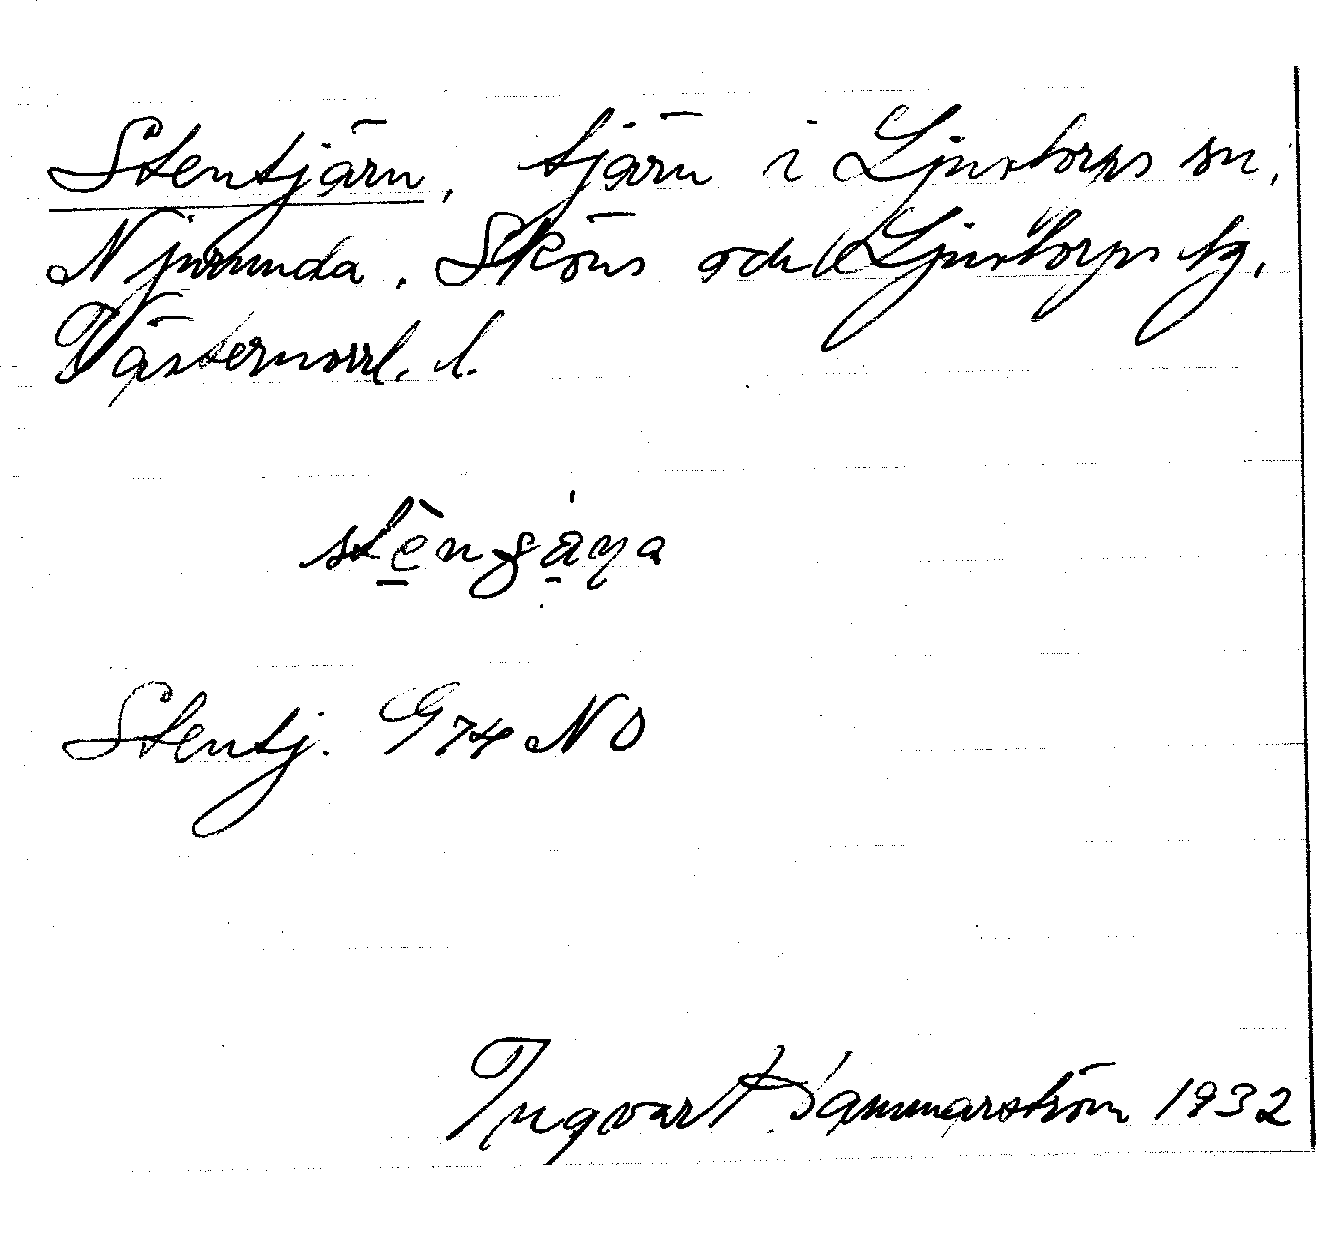 Stentjärn, tjärn i Ljustorps sn,
Njurunda, Sköns och Ljustorps tg,
Västernorrl. l.
Stentj. G 74 NO
Ingvart Hammarström 1932